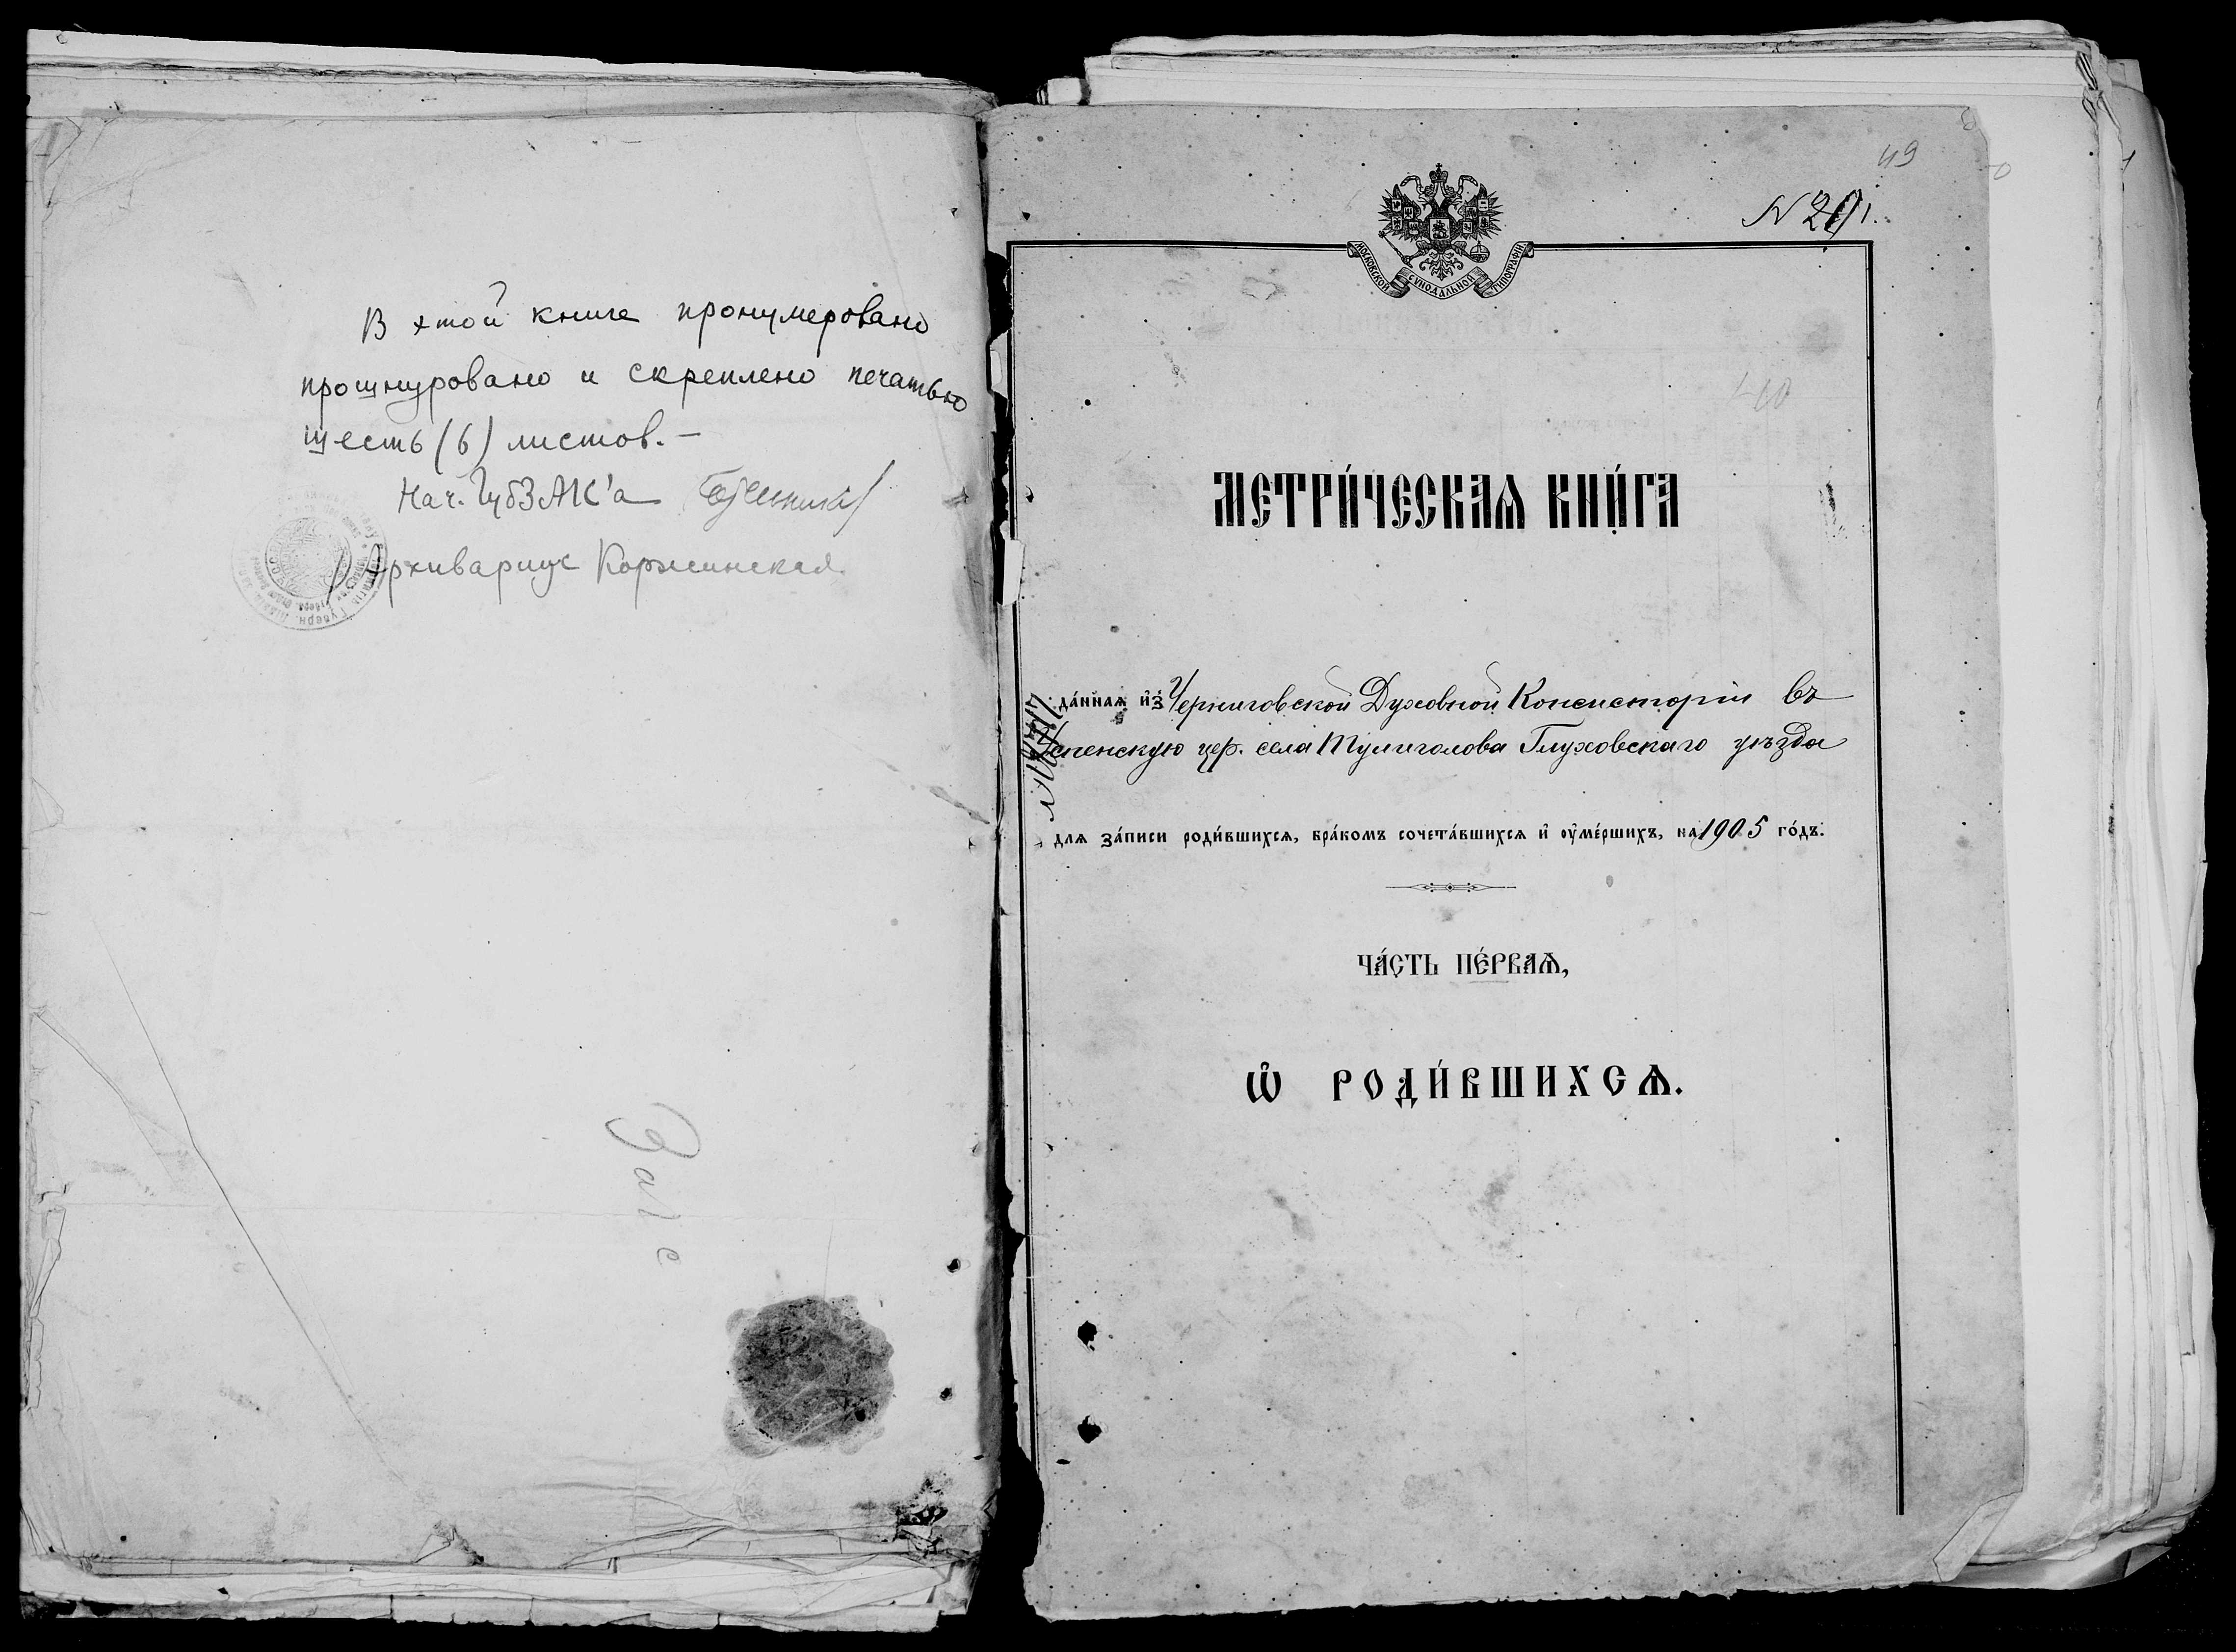 В этой книге пронумеровано
прошнуровано и скреплено печатью
шесть (6) листов. –
Нач. ГубЗАГС'а
Архивариус Коржинская
49
N 291.
МОСКОВСКОЙ СѴНОДАЛЬНОЙ ТИПОГРАФІИ
40
МЕТРИ́ЧЕСКАѦ КНИ́ГА
да́ннаѧ и҆з̾ Черниговской Духовной Консисторіи въ
Успенскую цер. села Тулиголова Глуховскаго уѣзда
длѧ за́писи роди́вшихсѧ, бра́комъ сочета́вшихсѧ и҆ ᲂу҆ме́ршихъ, на 1905 го́дъ.
ЧА́СТЬ ПЕ́РВАѦ,
Ѡ҆ РОДИ́ВШИХСѦ.